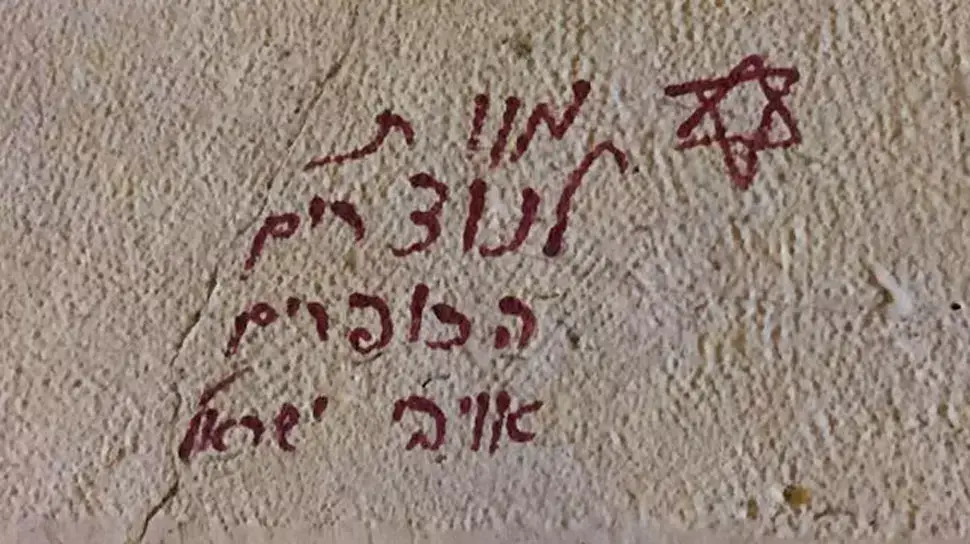 מוות
לנוצרים
הכופרים
אוייבי ישראל